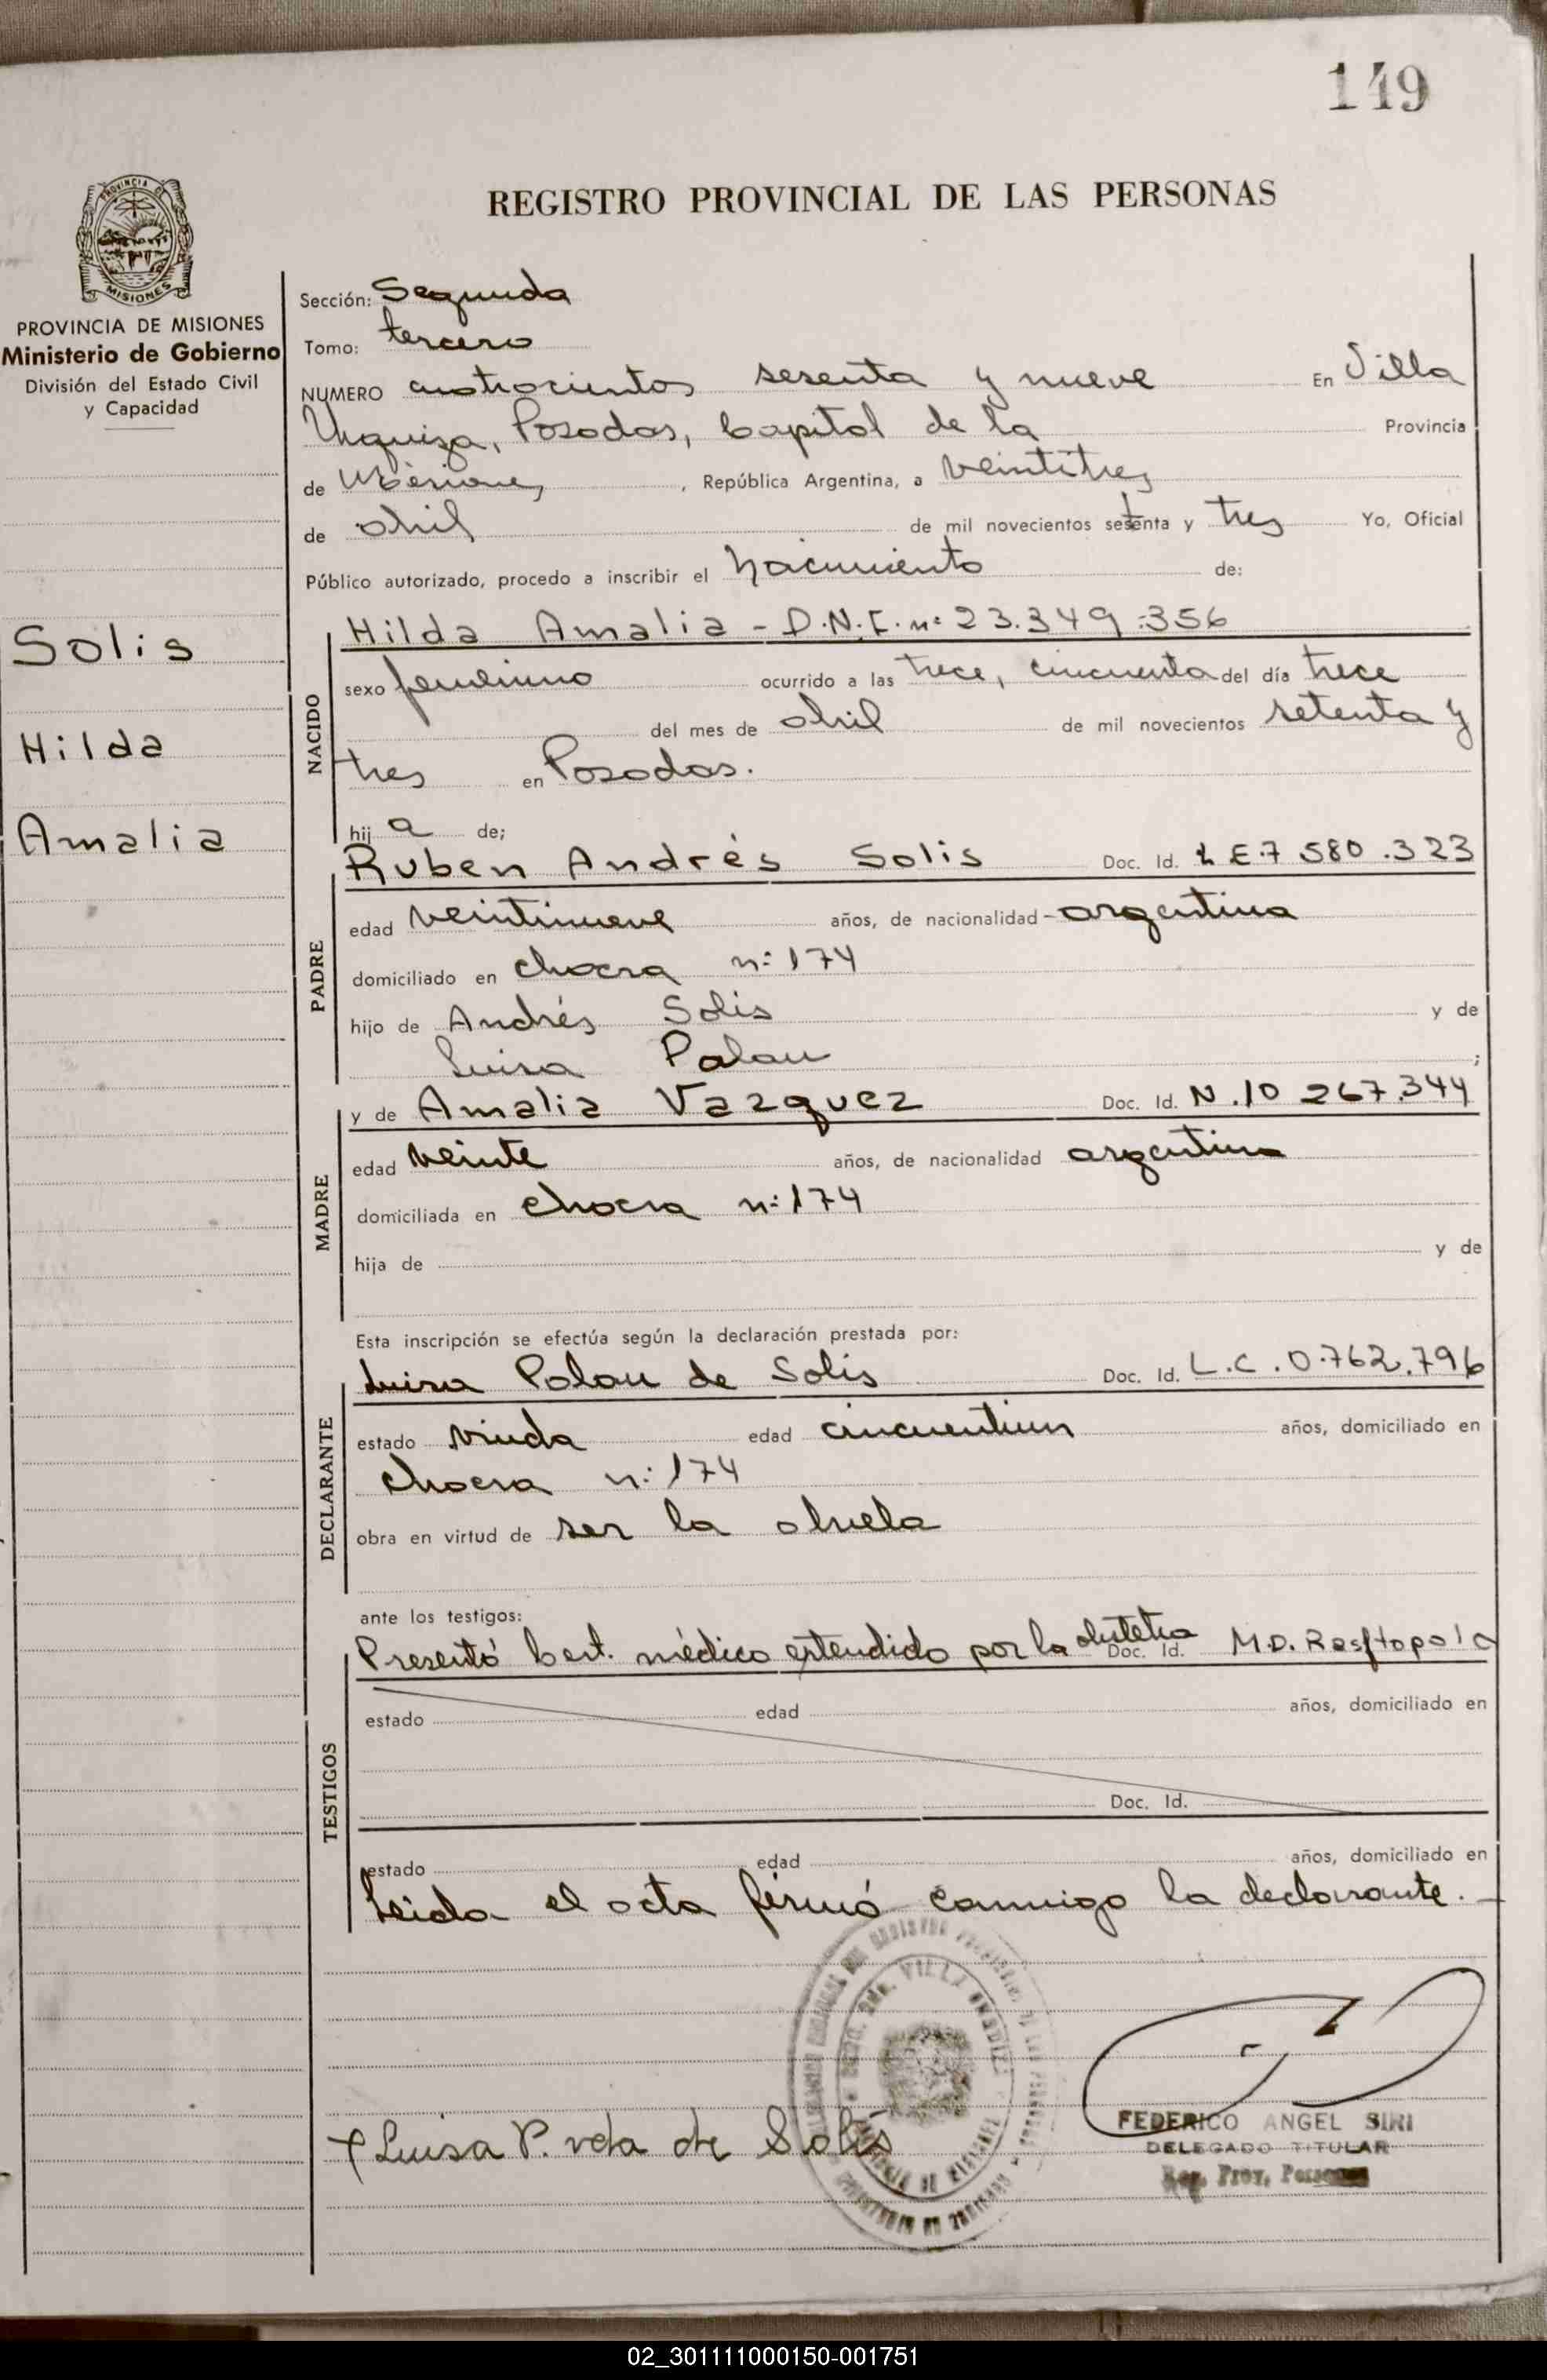 149
REGISTRO PROVINCIAL DE LAS PERSONAS
PROVINCIA DE MISIONES
PROVINCIA DE MISIONES
Ministerio de Gobierno
División del Estado Civil
y Capacidad
Solis
Hilda
Amalia
Sección: Segunda
Tomo: tercero
NUMERO cuatrocientos sesenta y nueve En Villa
Urquiza, Posadas, Capital de la Provincia
de Misiones, República Argentina, a veintitres
de abril de mil novecientos setenta y tres Yo, Oficial
Público autorizado, procedo a inscribir el nacimiento de:
NACIDO
Hilda Amalia - D.N.I. nº 23.349.356
sexo femenino ocurrido a las trece, cincuenta del día trece
del mes de abril de mil novecientos setenta y
tres en Posadas.
hij a de;
PADRE
Ruben Andrés Solis Doc. Id. L E.7 580.323
edad veintinueve años, de nacionalidad - argentina
domiciliado en chacra nº 174
hijo de Andrés Solis y de
Luisa Palau ;
MADRE
y de Amalia Vazquez Doc. Id. N.10 267.344
edad veinte años, de nacionalidad argentina
domiciliada en chacra nº 174
hija de y de
Esta inscripción se efectúa según la declaración prestada por:
DECLARANTE
Luisa Palau de Solis Doc. Id. L.C.0.762.796
estado viuda edad cincuentiun años, domiciliado en
chacra nº 174
obra en virtud de ser la abuela
ante los testigos:
TESTIGOS
Presentó Cert. médico extendido por la obstetra Doc. Id. M.D.
estado edad años, domiciliado en
Doc. Id.
estado edad años, domiciliado en
Leida el acta firmó conmigo la declarante.-
Luisa P. vda de Solís
FEDERICO ANGEL SIRI
DELEGADO TITULAR
Reg. Prov. Personas
02_301111000150-001751